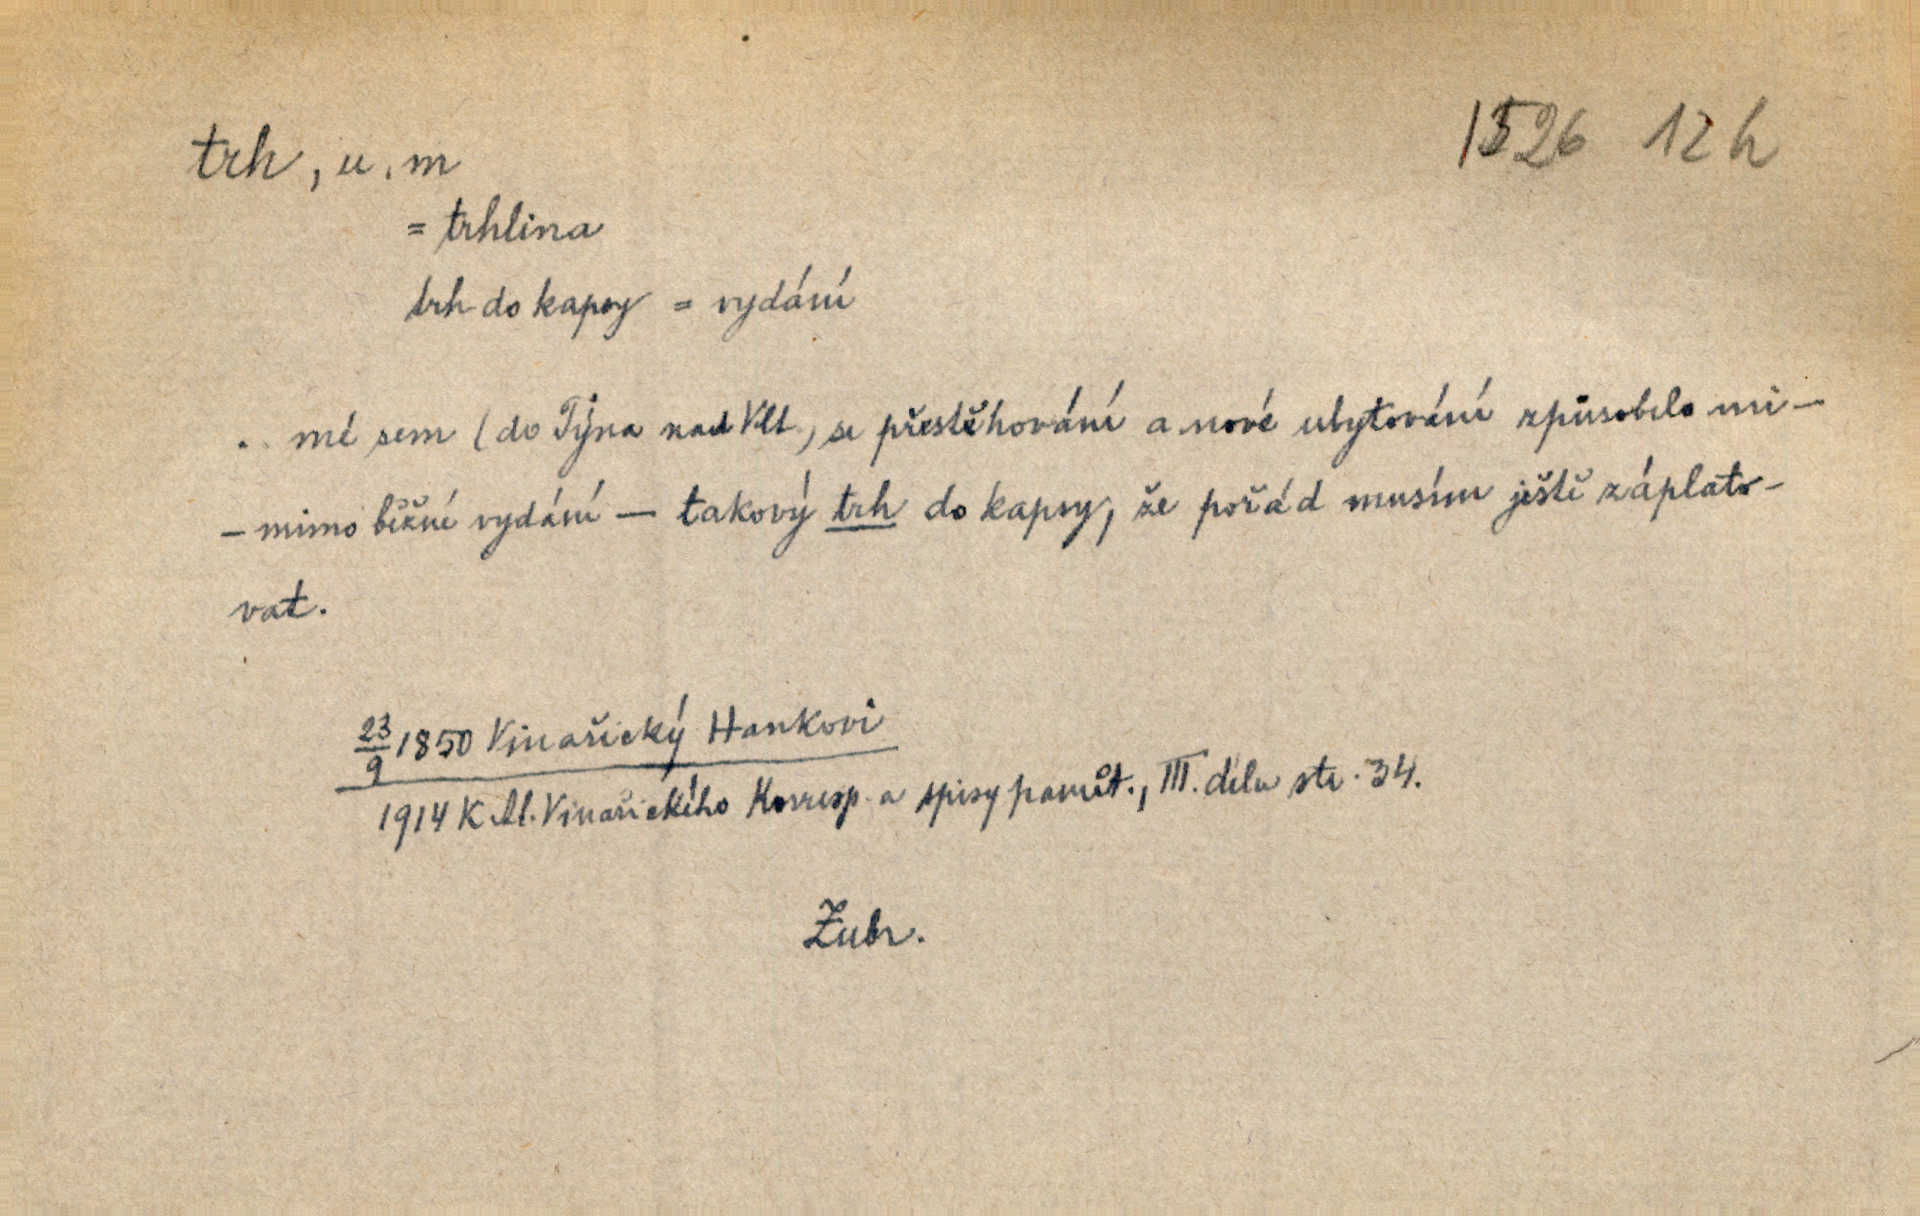 1526 12 h
trh, u, m
= trhlina
trh do kapsy = vydání
.. mé sem (do Týna nad Vlt.) se přestěhování a nové ubytování způsobilo mi —
— mimo běžné vydání — takový trh do kapsy, že pořád musím ještě záplato-
vat.
23/9 1850 Vinařický Hankovi
1914 K. Al. Vinařického Korresp. a spisy pamět., III. dílu str. 34.
Zubr.